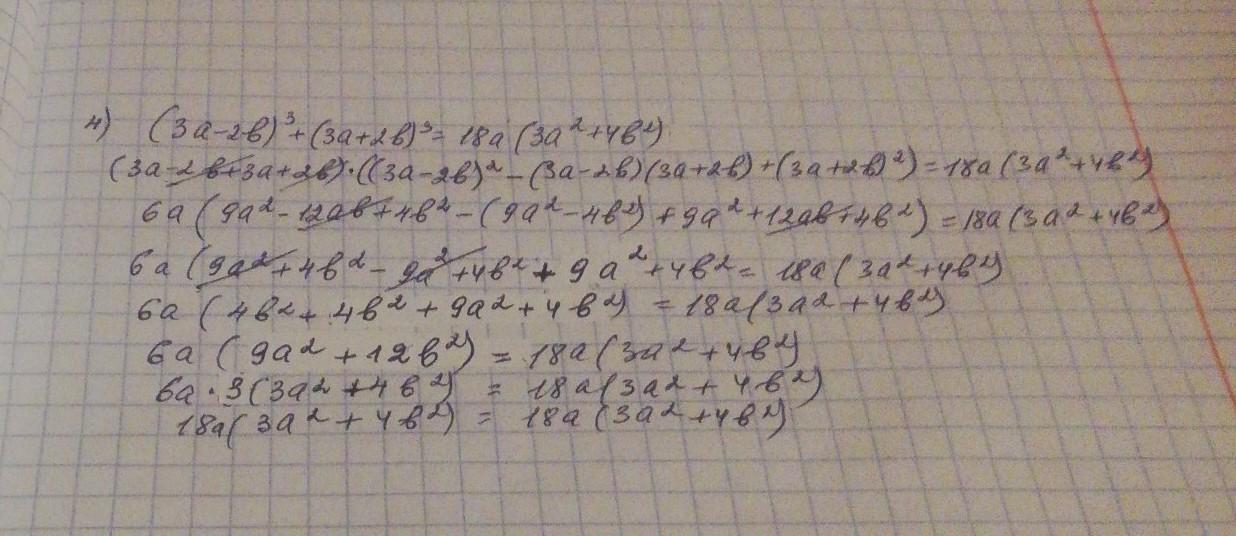 4) (3a-2в)³+(3a+2в)³=18a(3a²+4в²)
(3a-2в+3a+2в)·((3a-2в)²-(3a-2в)(3a+2в)+(3a+2в)²)=18a(3a²+4в²)
6a(9a²-12aв+4в²-(9a²-4в²)+9a²+12aв+4в²)=18a(3a²+4в²)
6a(9a²+4в²-9a²+4в²+9a²+4в²=18a(3a²+4в²)
6a(4в²+4в²+9a²+4в²)=18a(3a²+4в²)
6a(9a²+12в²)=18a(3a²+4в²)
6a·3(3a²+4в²)=18a(3a²+4в²)
18a(3a²+4в²)=18a(3a²+4в²)